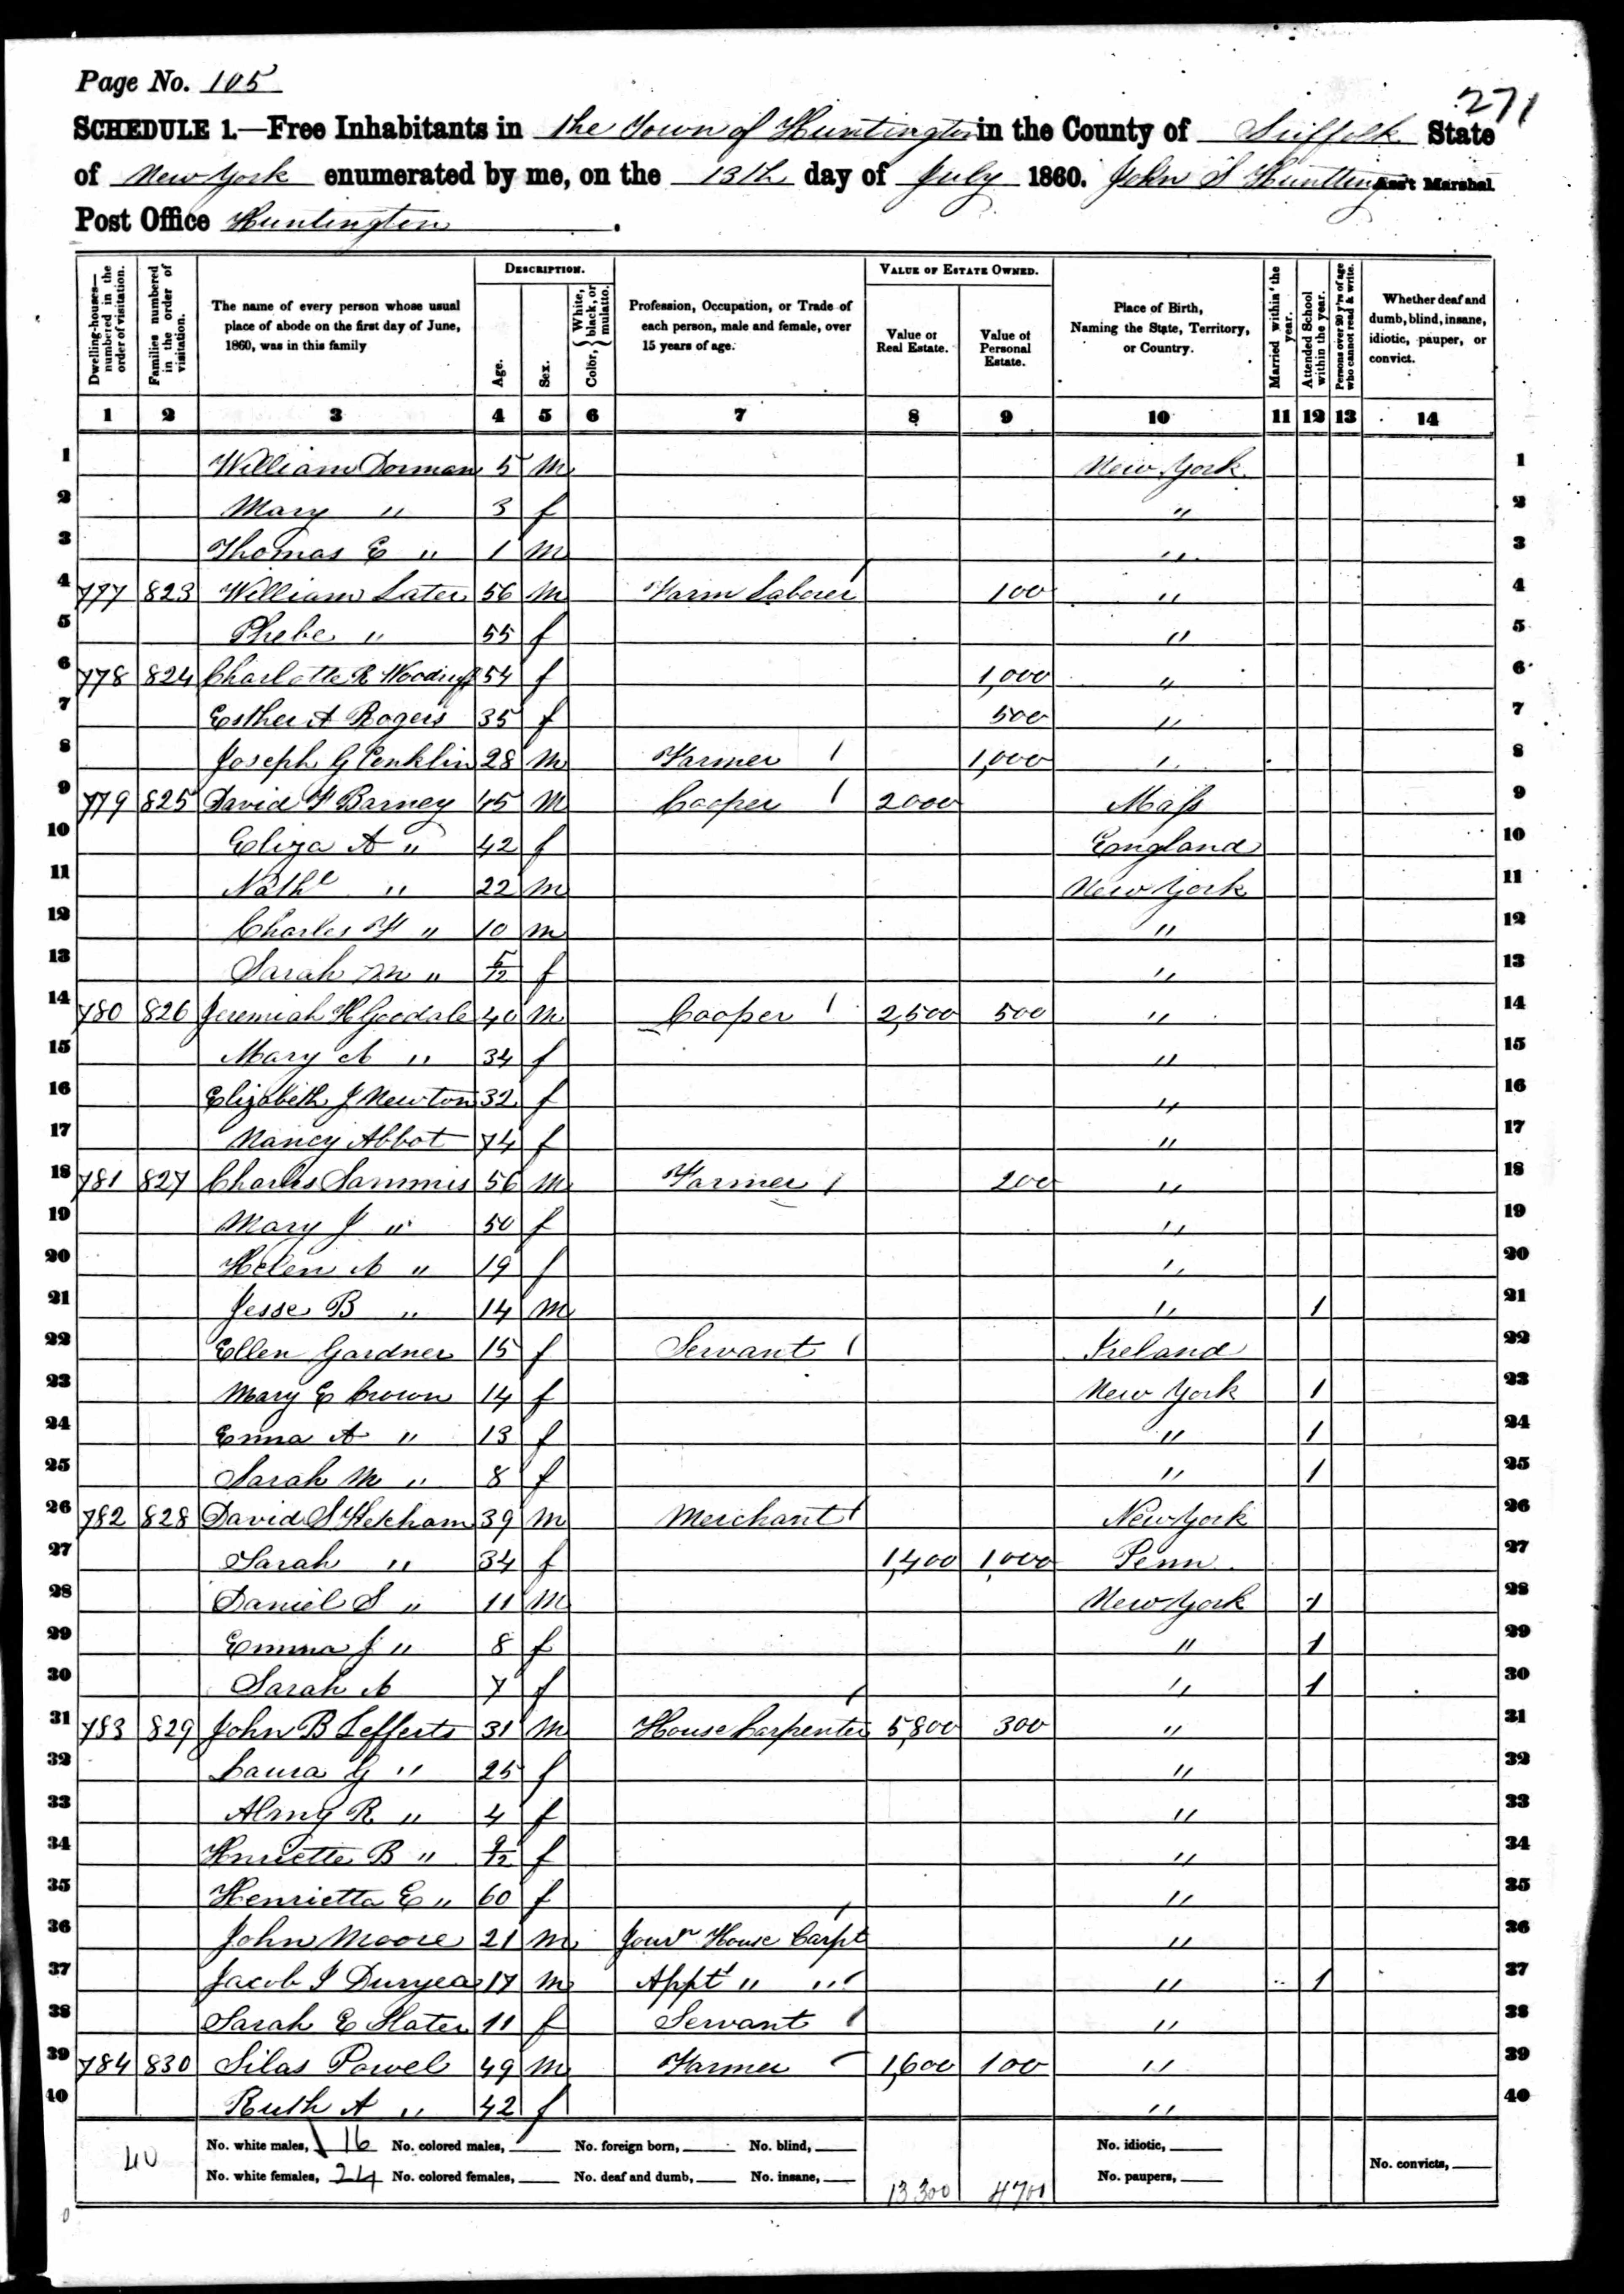 Page No. 105
271
SCHEDULE 1.—Free Inhabitants in the Town of Huntington in the County of Suffolk State
of New York enumerated by me, on the 13th day of July 1860. John S Huntting Ass't Marshal
Post Office Huntington.
Dwelling-houses—numbered in the order of visitation.
Families numbered in the order of visitation.
The name of every person whose usual place of abode on the first day of June, 1860, was in this family
DESCRIPTION.
Age.
Sex.
Color, { White, black, or mulatto.
Profession, Occupation, or Trade of each person, male and female, over 15 years of age.
VALUE OF ESTATE OWNED.
Value of Real Estate.
Value of Personal Estate.
Place of Birth, Naming the State, Territory, or Country.
Married within the year.
Attended School within the year.
Persons over 20 y'rs of age who cannot read & write.
Whether deaf and dumb, blind, insane, idiotic, pauper, or convict.
1 2 3 4 5 6 7 8 9 10 11 12 13 14
1 William Dorman 5 m New York 1
2 Mary " 3 f " 2
3 Thomas E " 1 m " 3
4 777 823 William Later 56 m Farm Laborer / 100 " 4
5 Phebe " 55 f " 5
6 778 824 Charlotte R Woodruff 54 f 1,000 " 6
7 Esther A Rogers 35 f 500 " 7
8 Joseph G Conklin 28 m Farmer / 1,000 " 8
9 779 825 David F Barney 45 m Cooper / 2000 Mass 9
10 Eliza A " 42 f England 10
11 Nathl " 22 m New York 11
12 Charles F " 10 m " 12
13 Sarah M " 5/12 f " 13
14 780 826 Jeremiah H Goodale 40 m Cooper / 2,500 500 " 14
15 Mary A " 34 f " 15
16 Elizabeth J Newton 32 f " 16
17 Nancy Abbot 74 f " 17
18 781 827 Charles Sammis 56 m Farmer / 200 " 18
19 Mary J " 50 f " 19
20 Helen A " 19 f " 20
21 Jesse B " 14 m " 1 21
22 Ellen Gardner 15 f Servant / Ireland 22
23 Mary E Crown 14 f New York 1 23
24 Emma A " 13 f " 1 24
25 Sarah M " 8 f " 1 25
26 782 828 David S Ketcham 39 m Merchant / New York 26
27 Sarah " 34 f 1,400 1,000 Penn 27
28 Daniel S " 11 m New York 1 28
29 Emma J " 8 f " 1 29
30 Sarah A 7 f " 1 30
31 783 829 John B Lefferts 31 m House Carpenter / 5,800 300 " 31
32 Laura G " 25 f " 32
33 Almy R " 4 f " 33
34 Hnriette B " 9/12 f " 34
35 Henrietta E " 60 f " 35
36 John Moore 21 m Journ House Carpt / " 36
37 Jacob I Duryea 17 m Appt " " / " 1 37
38 Sarah E Slater 11 f Servant / " 38
39 784 830 Silas Powel 49 m Farmer 1,600 100 " 39
40 Ruth A " 42 f " 40
40
No. white males, 16 No. colored males, No. foreign born, No. blind, No. idiotic,
No. white females, 24 No. colored females, No. deaf and dumb, No. insane, No. paupers, No. convicts,
13300 4700